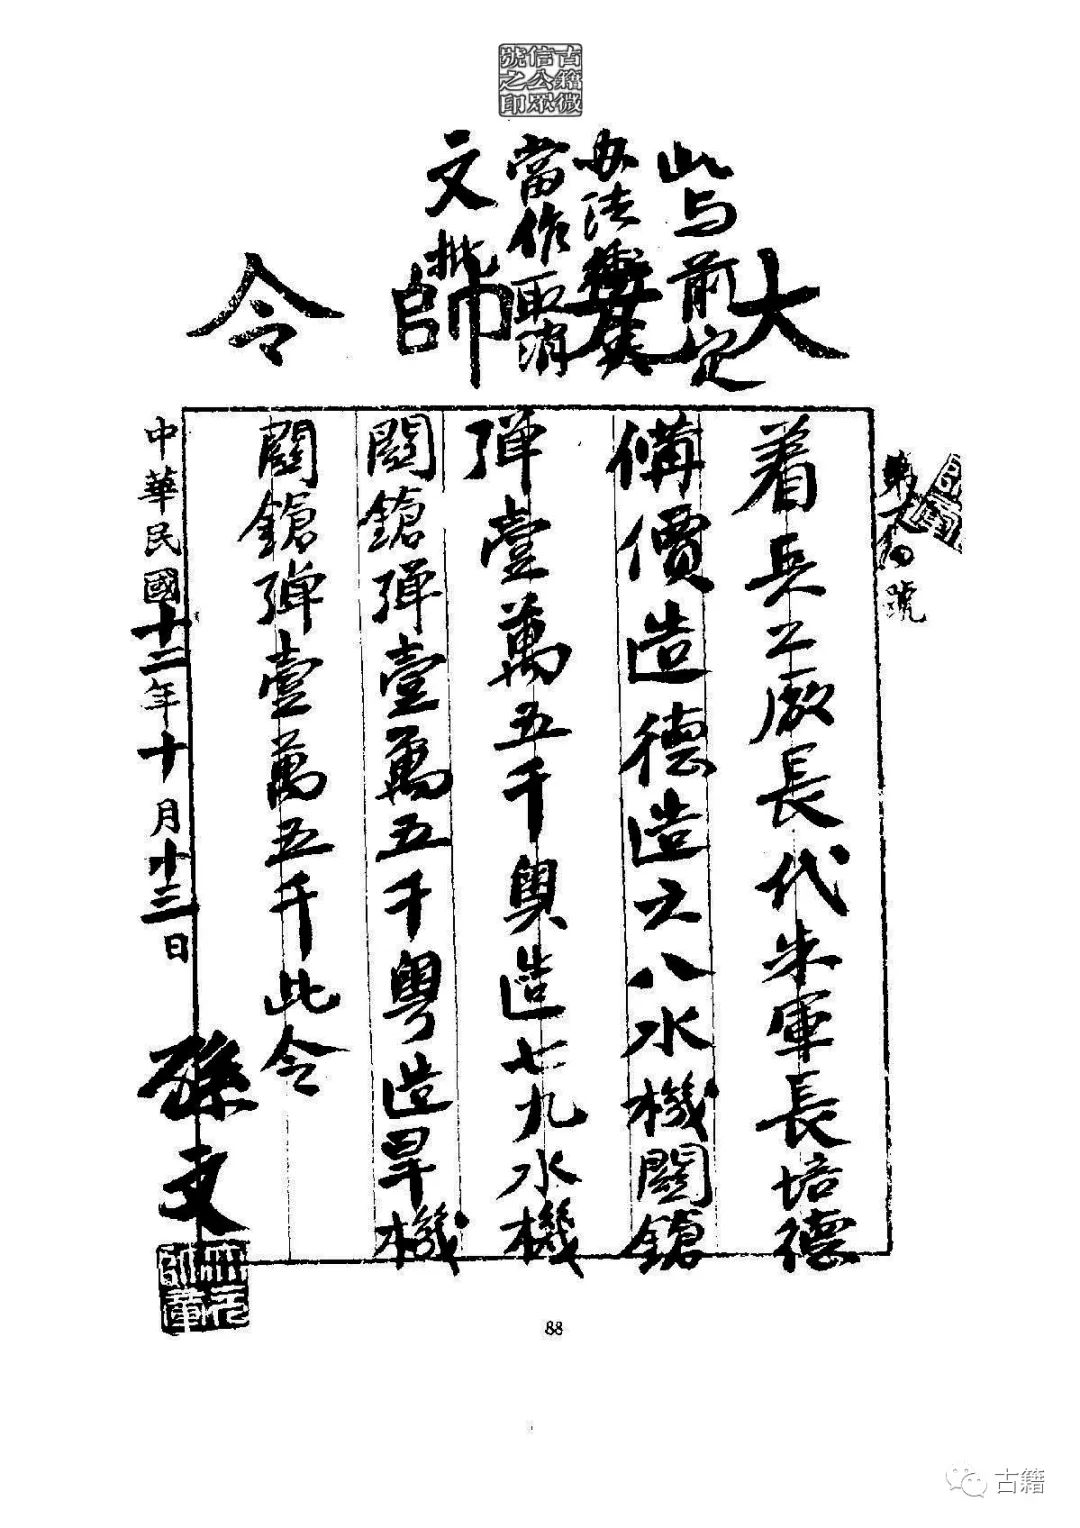 古籍微
信公眾
號之印
此与前定
办法衝突
當作取消
文批
大元帥令
第 號
着兵工廠長代朱軍長培德
備價造德造六八水機関鎗
弹壹萬五千粤造七九水機
関鎗弹壹萬五千粤造旱機
関鎗弹壹萬五千此令
中華民國十二年十月十三日
孫文
88
古籍